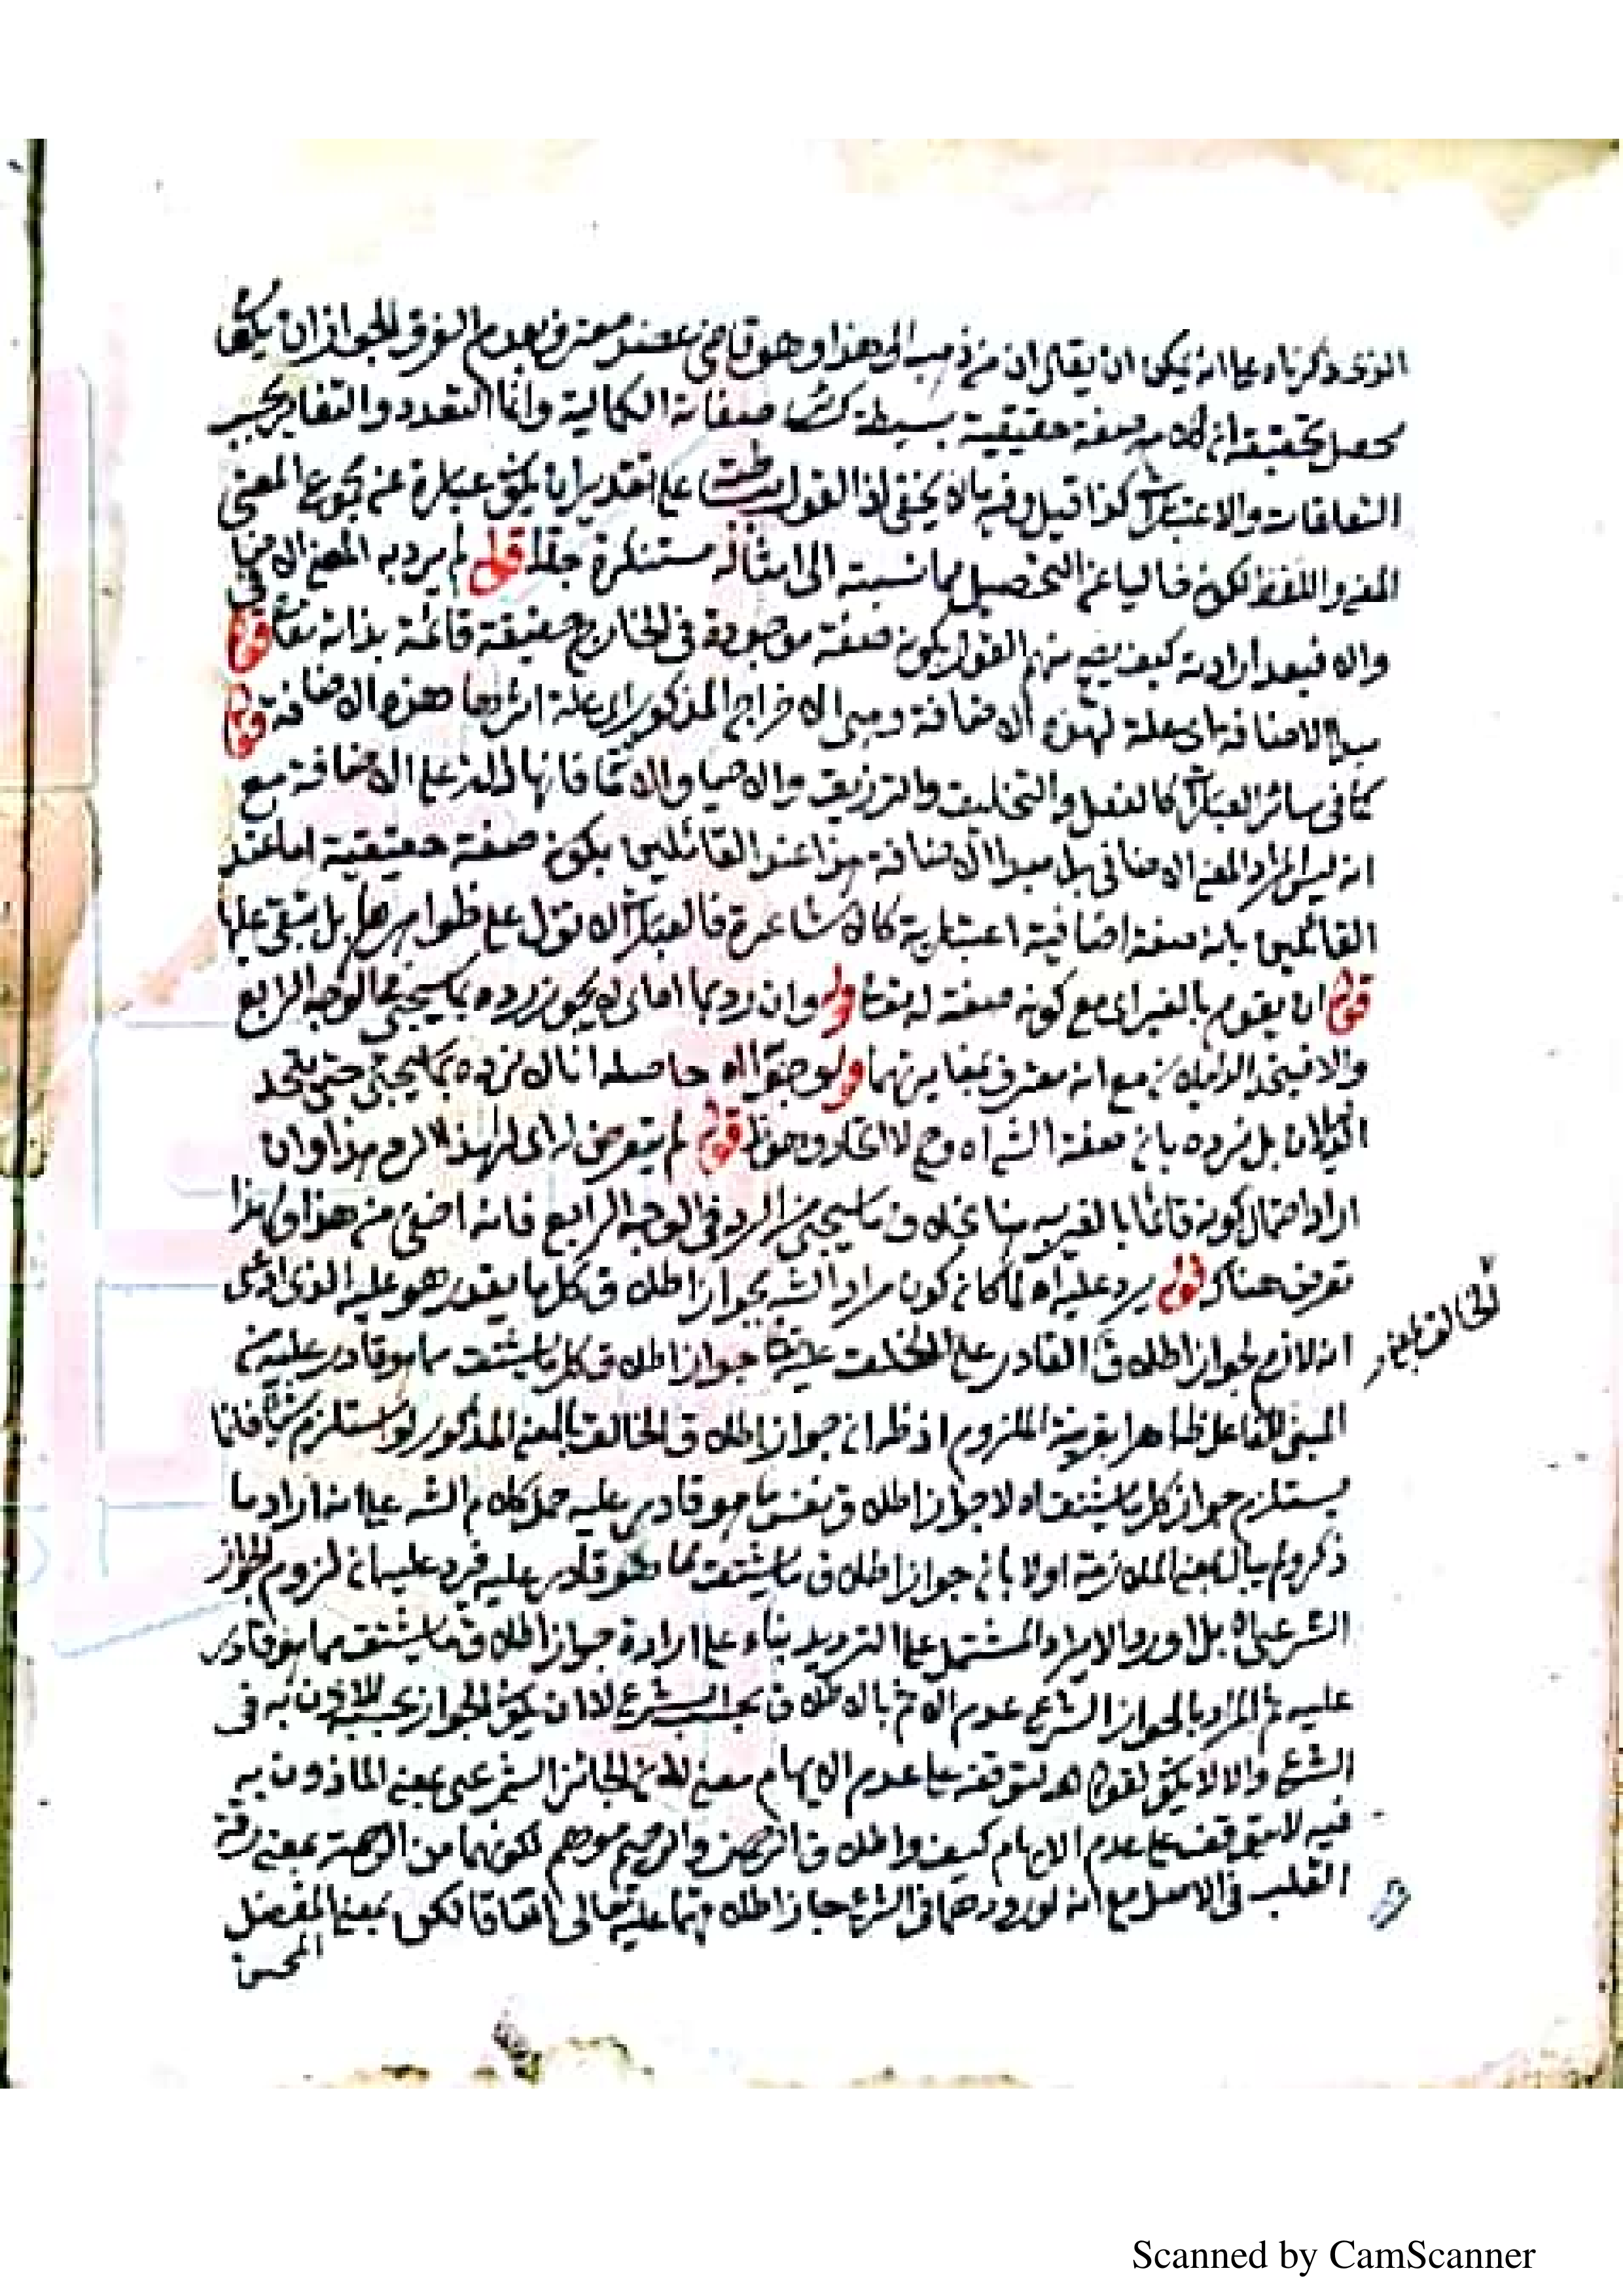 الذى ذكرناه على انه يمكن ان يقال ان من ذهب الى هذا وهو قاضى عضد معترف بعدم الفرق لجواز ان يكون
صفة حقيقية بسيطة كسائر صفاته الكمالية وانما التعدد والتغاير بحسب
التعلقات والاعتبارات كذا قيل وفيه ما لا يخفى اذ القول على تقدير ان يكون عبارة عن مجموع المعنى
المعنى واللفظ لكن خاليا عن التحصيل مما نسبته الى امثاله مستنكرة جدا قوله لم يرد به المعنى الاضافى
والا فبعد ارادته كيف يصح منهم القول بكونه صفة موجودة فى الخارج حقيقة قائمة بذاته تعا قوله
مبدأ الاضافة اى علة لهذه الاضافة ومبدأ الاخراج المذكور اى علة اثرها هذه الاضافة قوله
كما فى سائر العبارات كالفعل والتخليق والترزيق والاحياء والاماتة فانها دالة على الاضافة مع
انه ليس المراد المعنى الاضافى بل مبدأ الاضافة هذا عند القائلين بكونه صفة حقيقية اما عند
القائلين بانه صفة اضافية اعتبارية كالاشاعرة فالعبارات لا تؤل على ظواهرها بل تبقى عليها
قوله ان يقوم بالغير اى مع كونه صفة له تعا قوله وان رد بما اما اى لا يجوز رده بما سيجئ فى الوجه الرابع
والا فيتحد الدليلان مع انه معترف بتغايرهما قوله حاصله انا لا نرده بما سيجئ حتى يتحد
الدليلان بل نرده بان صفة الشئ اه وح لا اتحاد وهو ظ قوله لم يتعرض له اى لهذا الرد هذا وان
اراد احتمال كونه قائما بالغير هنا بخلاف ما سيجئ من الرد فى الوجه الرابع فانه اخفى من هذا ولذا
تعرض هناك قوله يرد عليه اه لما كان كون مراد الش بجواز اطلاق كل ما يقدر هو عليه الذى ادعى
انه لازم لجواز اطلاق القادر على الخلق عليه تعا جواز اطلاق كل ما يشتق مما هو قادر عليه من
المبنى للفاعل ظاهرا بقرينة الملزوم اذ ظ ان جواز اطلاق الخالق بالمعنى المذكور لو استلزم شيئا فانما
يستلزم جواز كل ما يشتق اه لا جواز اطلاق نفس ما هو قادر عليه حمل كلام الش على انه اراد ما
ذكر ولم يبال بمعنى الملازمة اولا بان جواز اطلاق ما يشتق مما هو قادر عليه فيرد عليه ان لزوم الجواز
الشرعى اه بل اورد الايراد المشتمل على الترديد بناء على ارادة جواز اطلاق ما يشتق مما هو قادر
عليه ثم المراد بالجواز الشرعى عدم الاثم بالاطلاق بحسب الشرع لا ان يكون الجواز بحسب الاذن به فى
الشرع والا لا يكون لقوله لتوقفه على عدم الايهام معنى لان الجائز الشرعى بمعنى الماذون به
فيه لا يتوقف على عدم الايهام كيف واطلاق الرحمن والرحيم موهم لكونهما من الرحمة بمعنى رقة
القلب فى الاصل مع انه لورودهما فى الشرع جاز اطلاقهما عليه تعالى اتفاقا لكن بمعنى المفضل
المحسن
Scanned by CamScanner